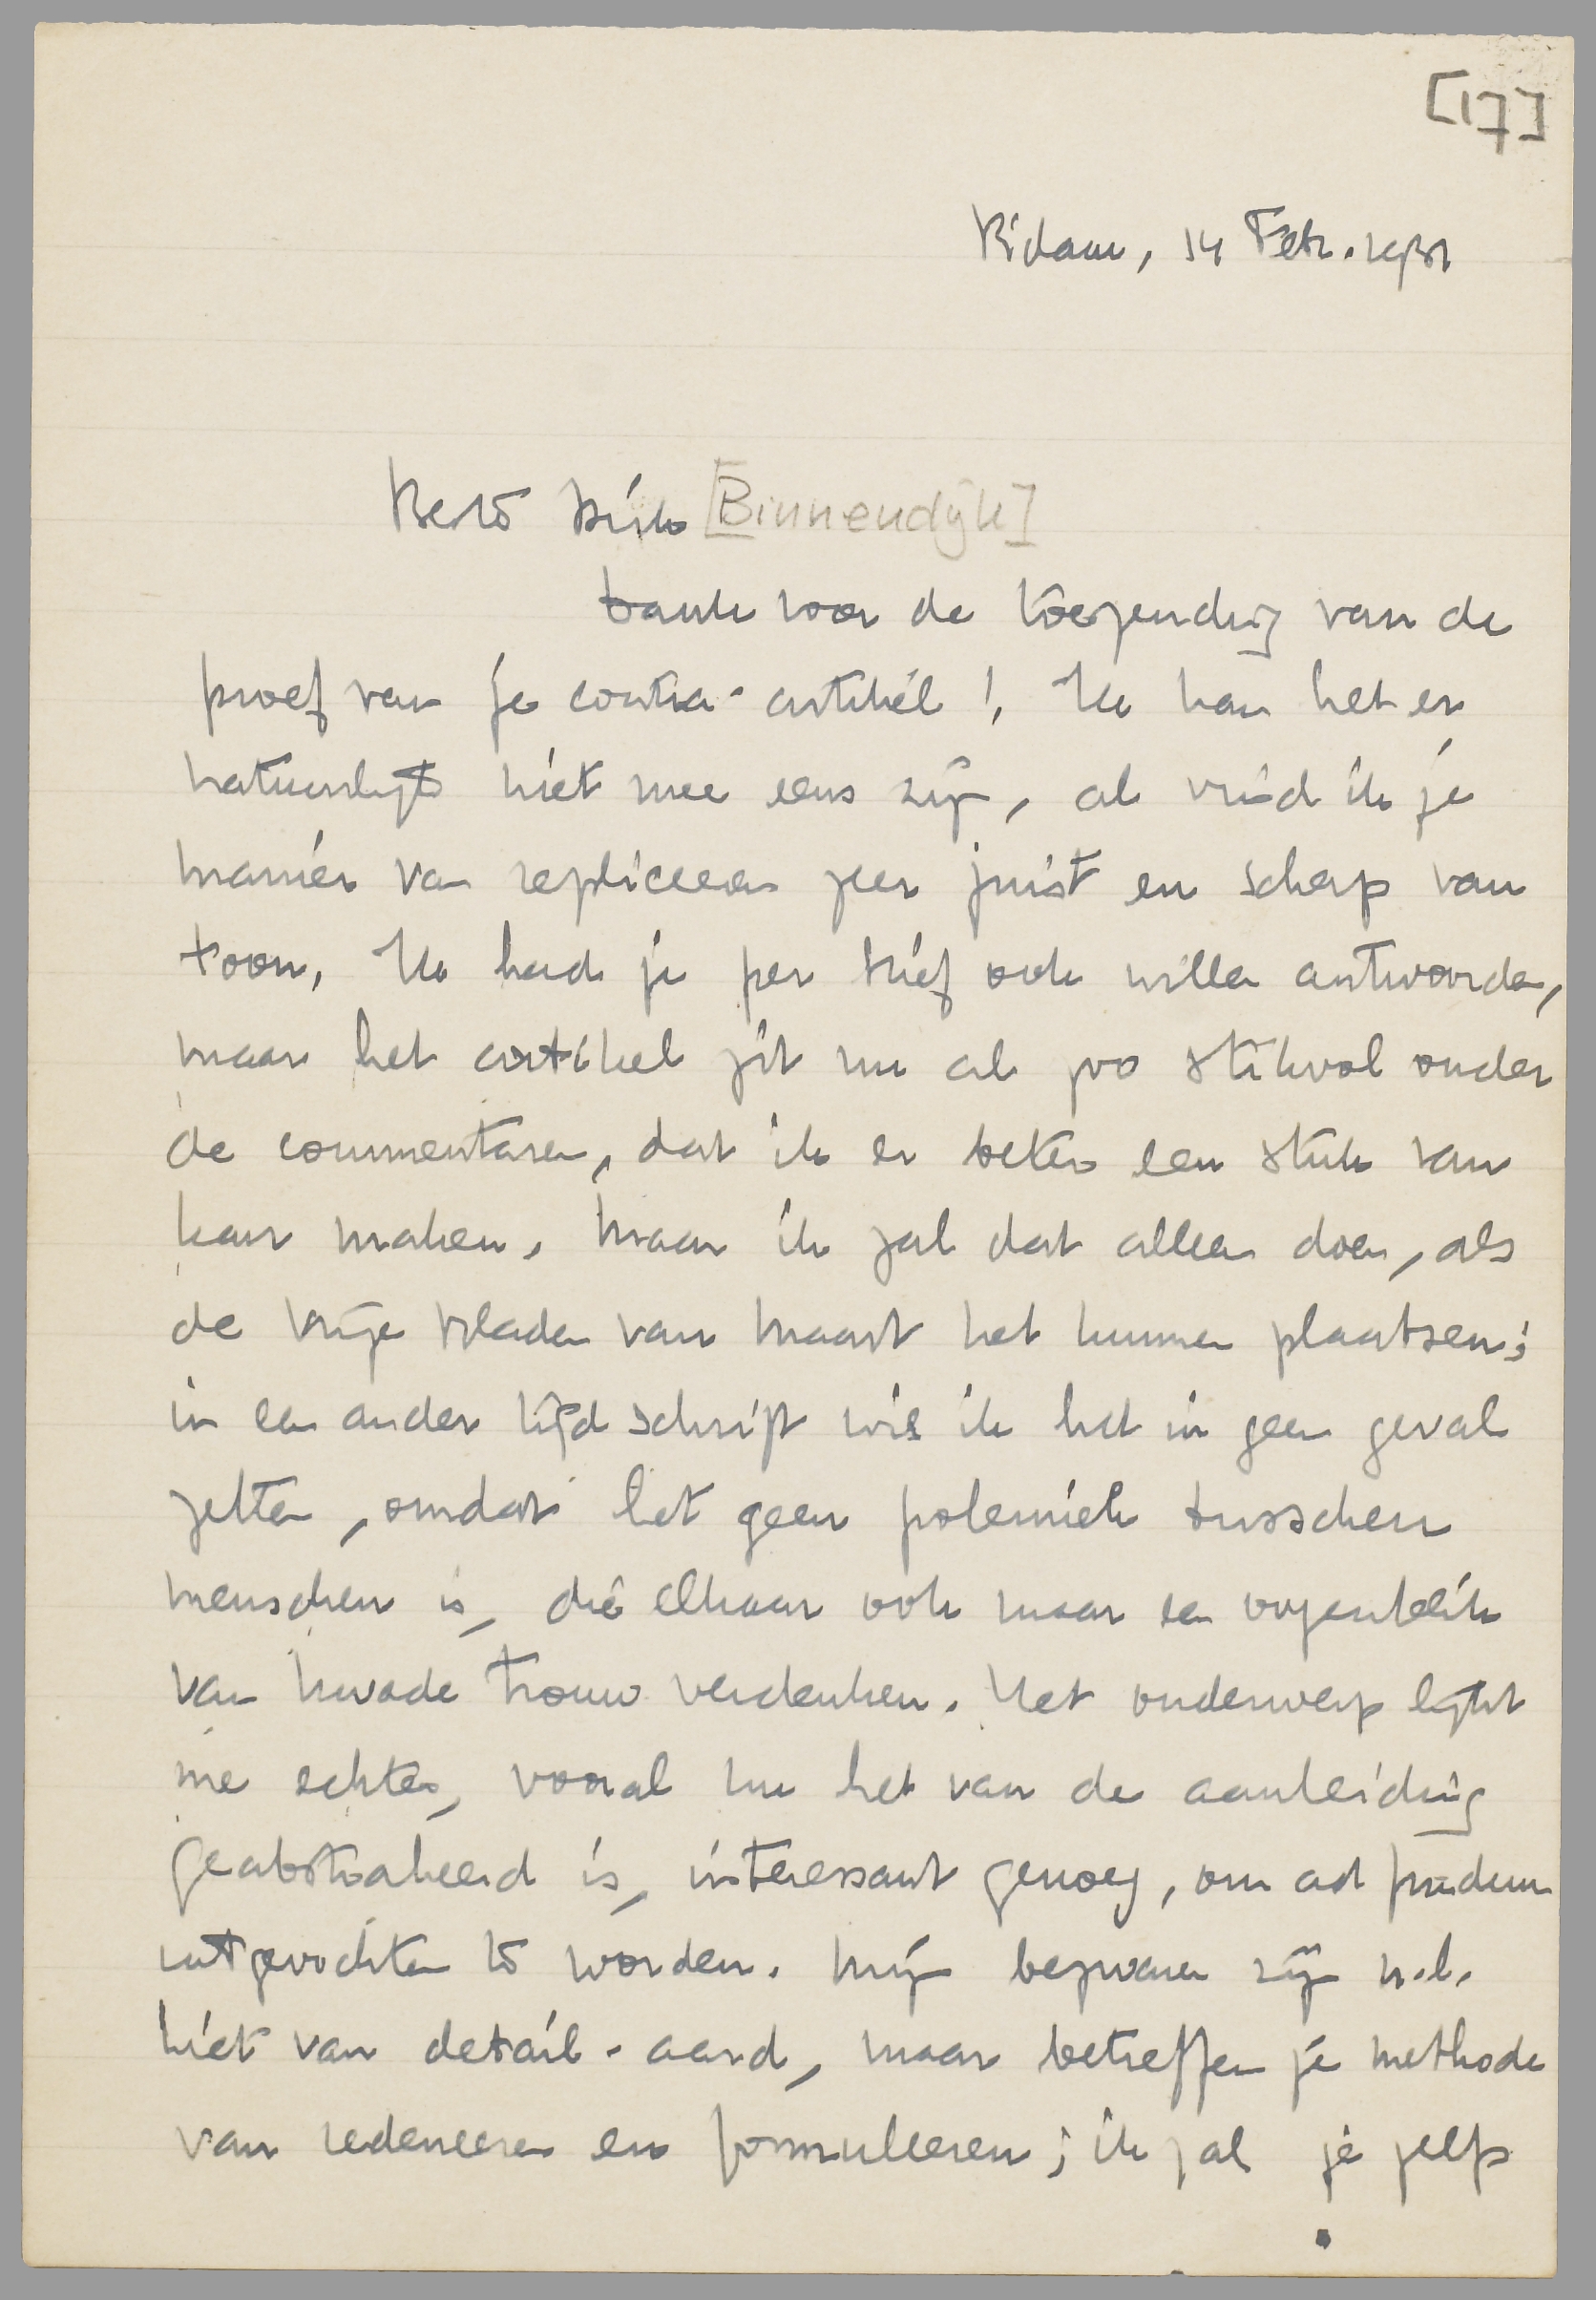 [17]
R'dam, 14 Febr. 1931
Beste Dick [Binnendijk]
Dank voor de toezending van de
proef van je contra-artikel! Ik kan het er
natuurlijk niet mee eens zijn, al vind ik je
manier van repliceeren zeer juist en scherp van
toon. Ik had je per brief ook willen antwoorden,
maar het artikel zit nu al zoo stikvol onder
de commentaren, dat ik er beter een stuk van
kan maken. Maar ik zal dat alleen doen, als
de Vrije Bladen van Maart het kunnen plaatsen;
in een ander tijdschrift wil ik het in geen geval
zetten, omdat het geen polemiek tusschen
menschen is, die elkaar ook maar een oogenblik
van kwade trouw verdenken. Het onderwerp lijkt
me echter, vooral nu het van de aanleiding
geabstraheerd is, interessant genoeg, om ad fundum
uitgevochten te worden. Mijn bezwaren zijn n.l.
niet van detail-aard, maar betreffen je methode
van redeneeren en formuleeren; ik zal je zelfs